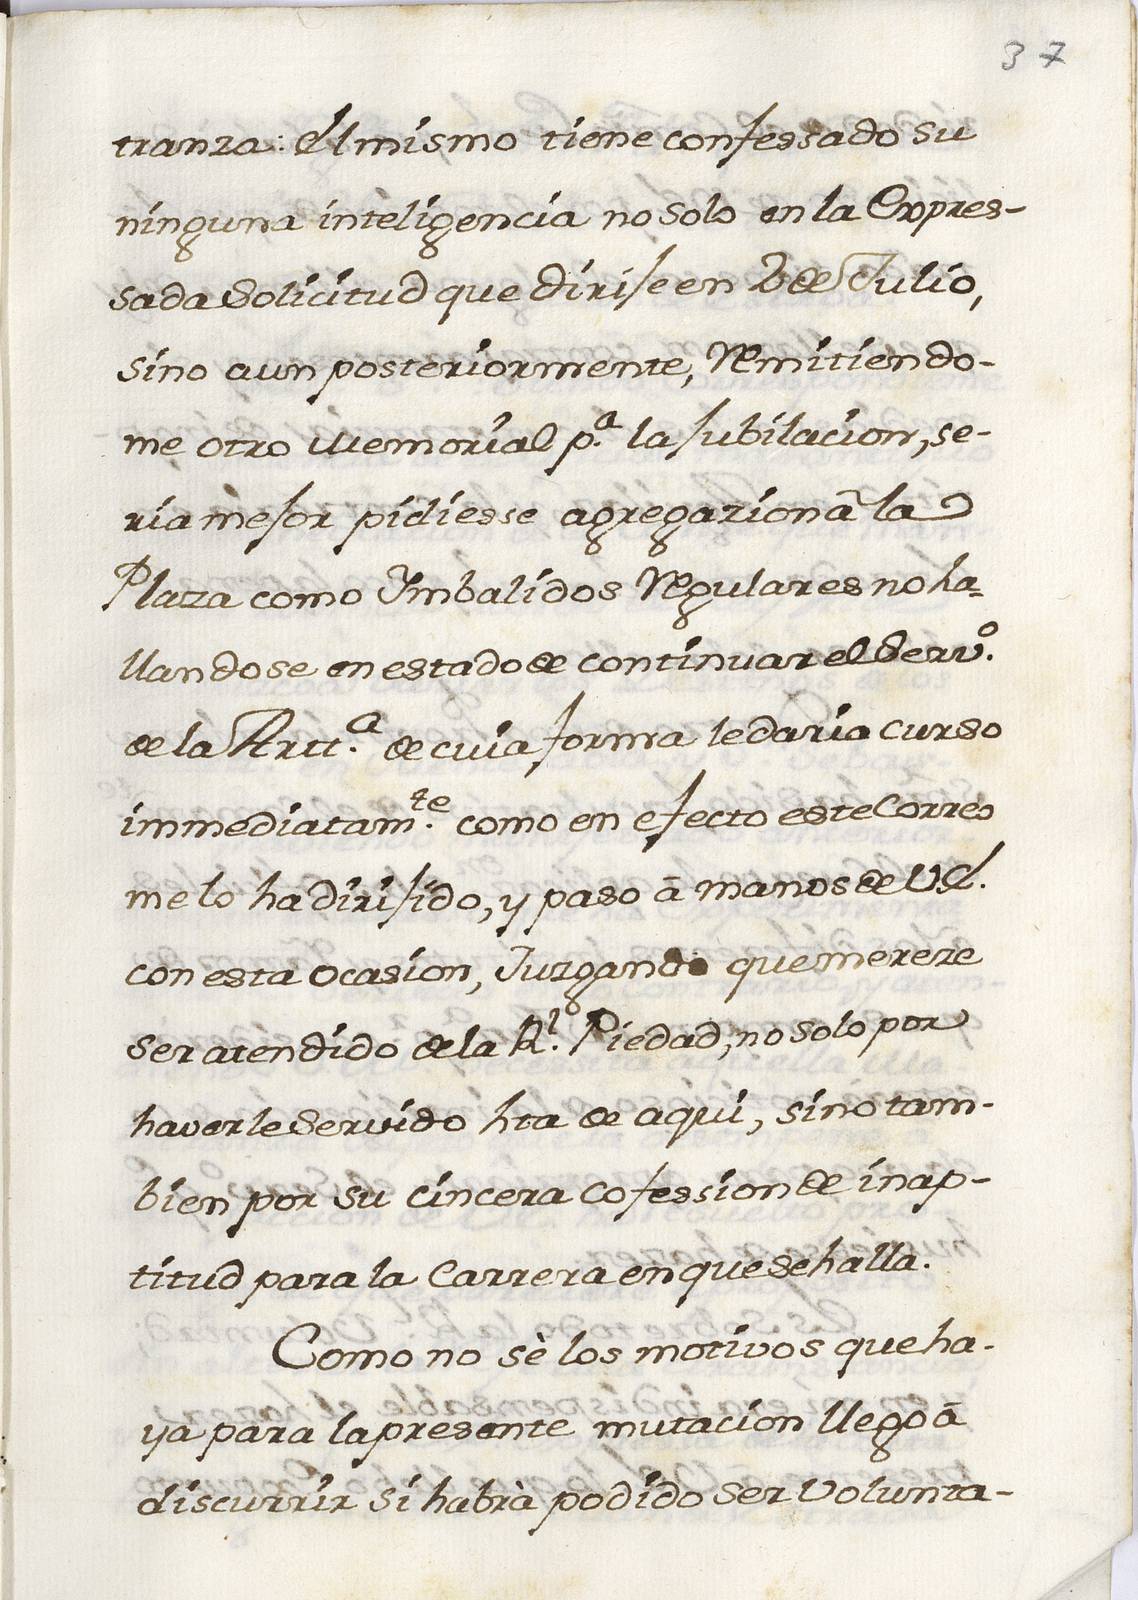 37
tranza: él mismo tiene confessado su
ninguna inteligencia no solo en la Expres-
sada Solicitud que dirije en 2 de Julio,
sino aun posteriormente, Remitiendo-
me otro Memorial p.ª la jubilacion, se-
ria mejor pidiesse agregazion â la
Plaza como Imbalidos Regulares no ha-
llandose en estado de continuar el Serv.º
de la Artt.ª de cuia forma le daria curso
immediatam.te como en efecto este Correo
me lo ha dirijido, y paso â manos de V.E.
con esta ocasion, Juzgando que mereze
ser atendido de la R.l Piedad, no solo por
haverle Servido hta de aqui, sino tam-
bien por su cincera cofession de inap-
titud para la Carrera en que se halla.
Como no sè los motivos que ha-
ya para la presente mutacion llego â
discurrir si habrà podido ser Volunta-